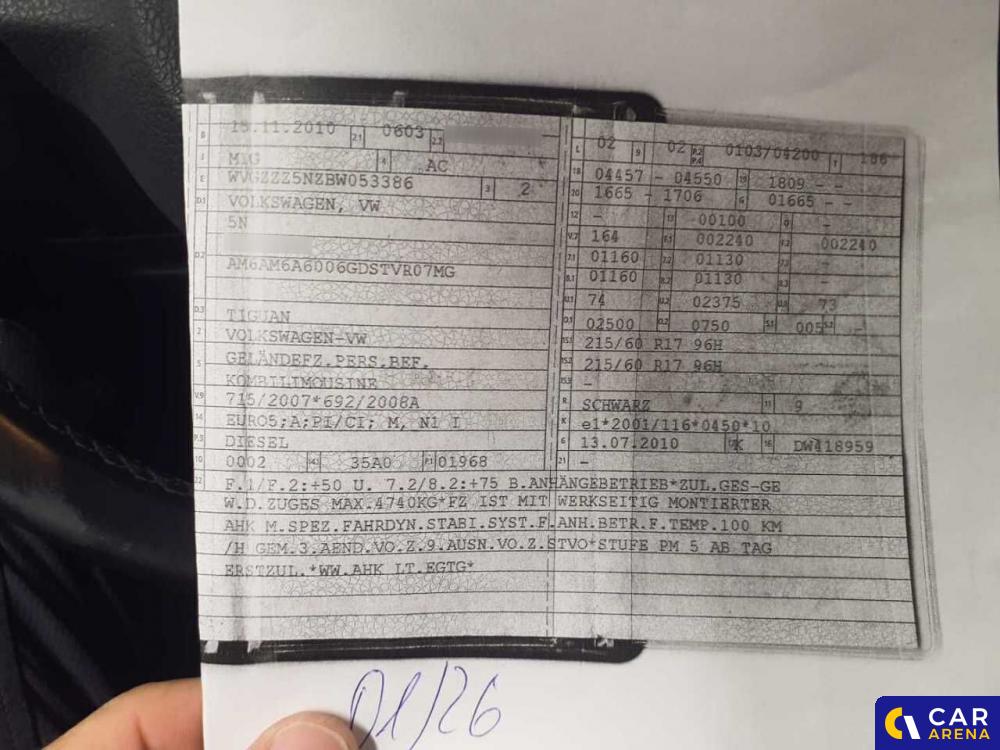 B 15.11.2010 2.1 0603 2.2
J M1G 4 AC
E WVGZZZ5NZBW053386 3 2
D.1 VOLKSWAGEN, VW
5N
D.2
AM6AM6A6006GDSTVR07MG
D.3 TIGUAN
2 VOLKSWAGEN-VW
5 GELÄNDEFZ.PERS.BEF.
KOMBILIMOUSINE
V.9 715/2007*692/2008A
14 EURO5;A;PI/CI; M, N1 I
P.3 DIESEL
10 0002 14.1 35A0 P.1 01968
L 02 9 02 P.2 P.4 0103/04200 T 186
18 04457 - 04550 19 1809 - -
20 1665 - 1706 G 01665 - -
12 - 13 00100 Q -
V.7 164 F.1 002240 F.2 002240
7.1 01160 7.2 01130 7.3 -
8.1 01160 8.2 01130 8.3 -
U.1 74 U.2 02375 U.3 73
O.1 02500 O.2 0750 S.1 005 S.2 -
15.1 215/60 R17 96H
15.2 215/60 R17 96H
15.3 -
R SCHWARZ 11 9
K e1*2001/116*0450*10
6 13.07.2010 17 K 16 DW418959
21 -
22 F.1/F.2:+50 U. 7.2/8.2:+75 B.ANHÄNGEBETRIEB*ZUL.GES-GE
W.D.ZUGES MAX.4740KG*FZ IST MIT WERKSEITIG MONTIERTER
AHK M.SPEZ.FAHRDYN.STABI.SYST.F.ANH.BETR.F.TEMP.100 KM
/H GEM.3.AEND.VO.Z.9.AUSN.VO.Z.STVO*STUFE PM 5 AB TAG
ERSTZUL.*WW.AHK LT.EGTG*
01/26
CAR
ARENA